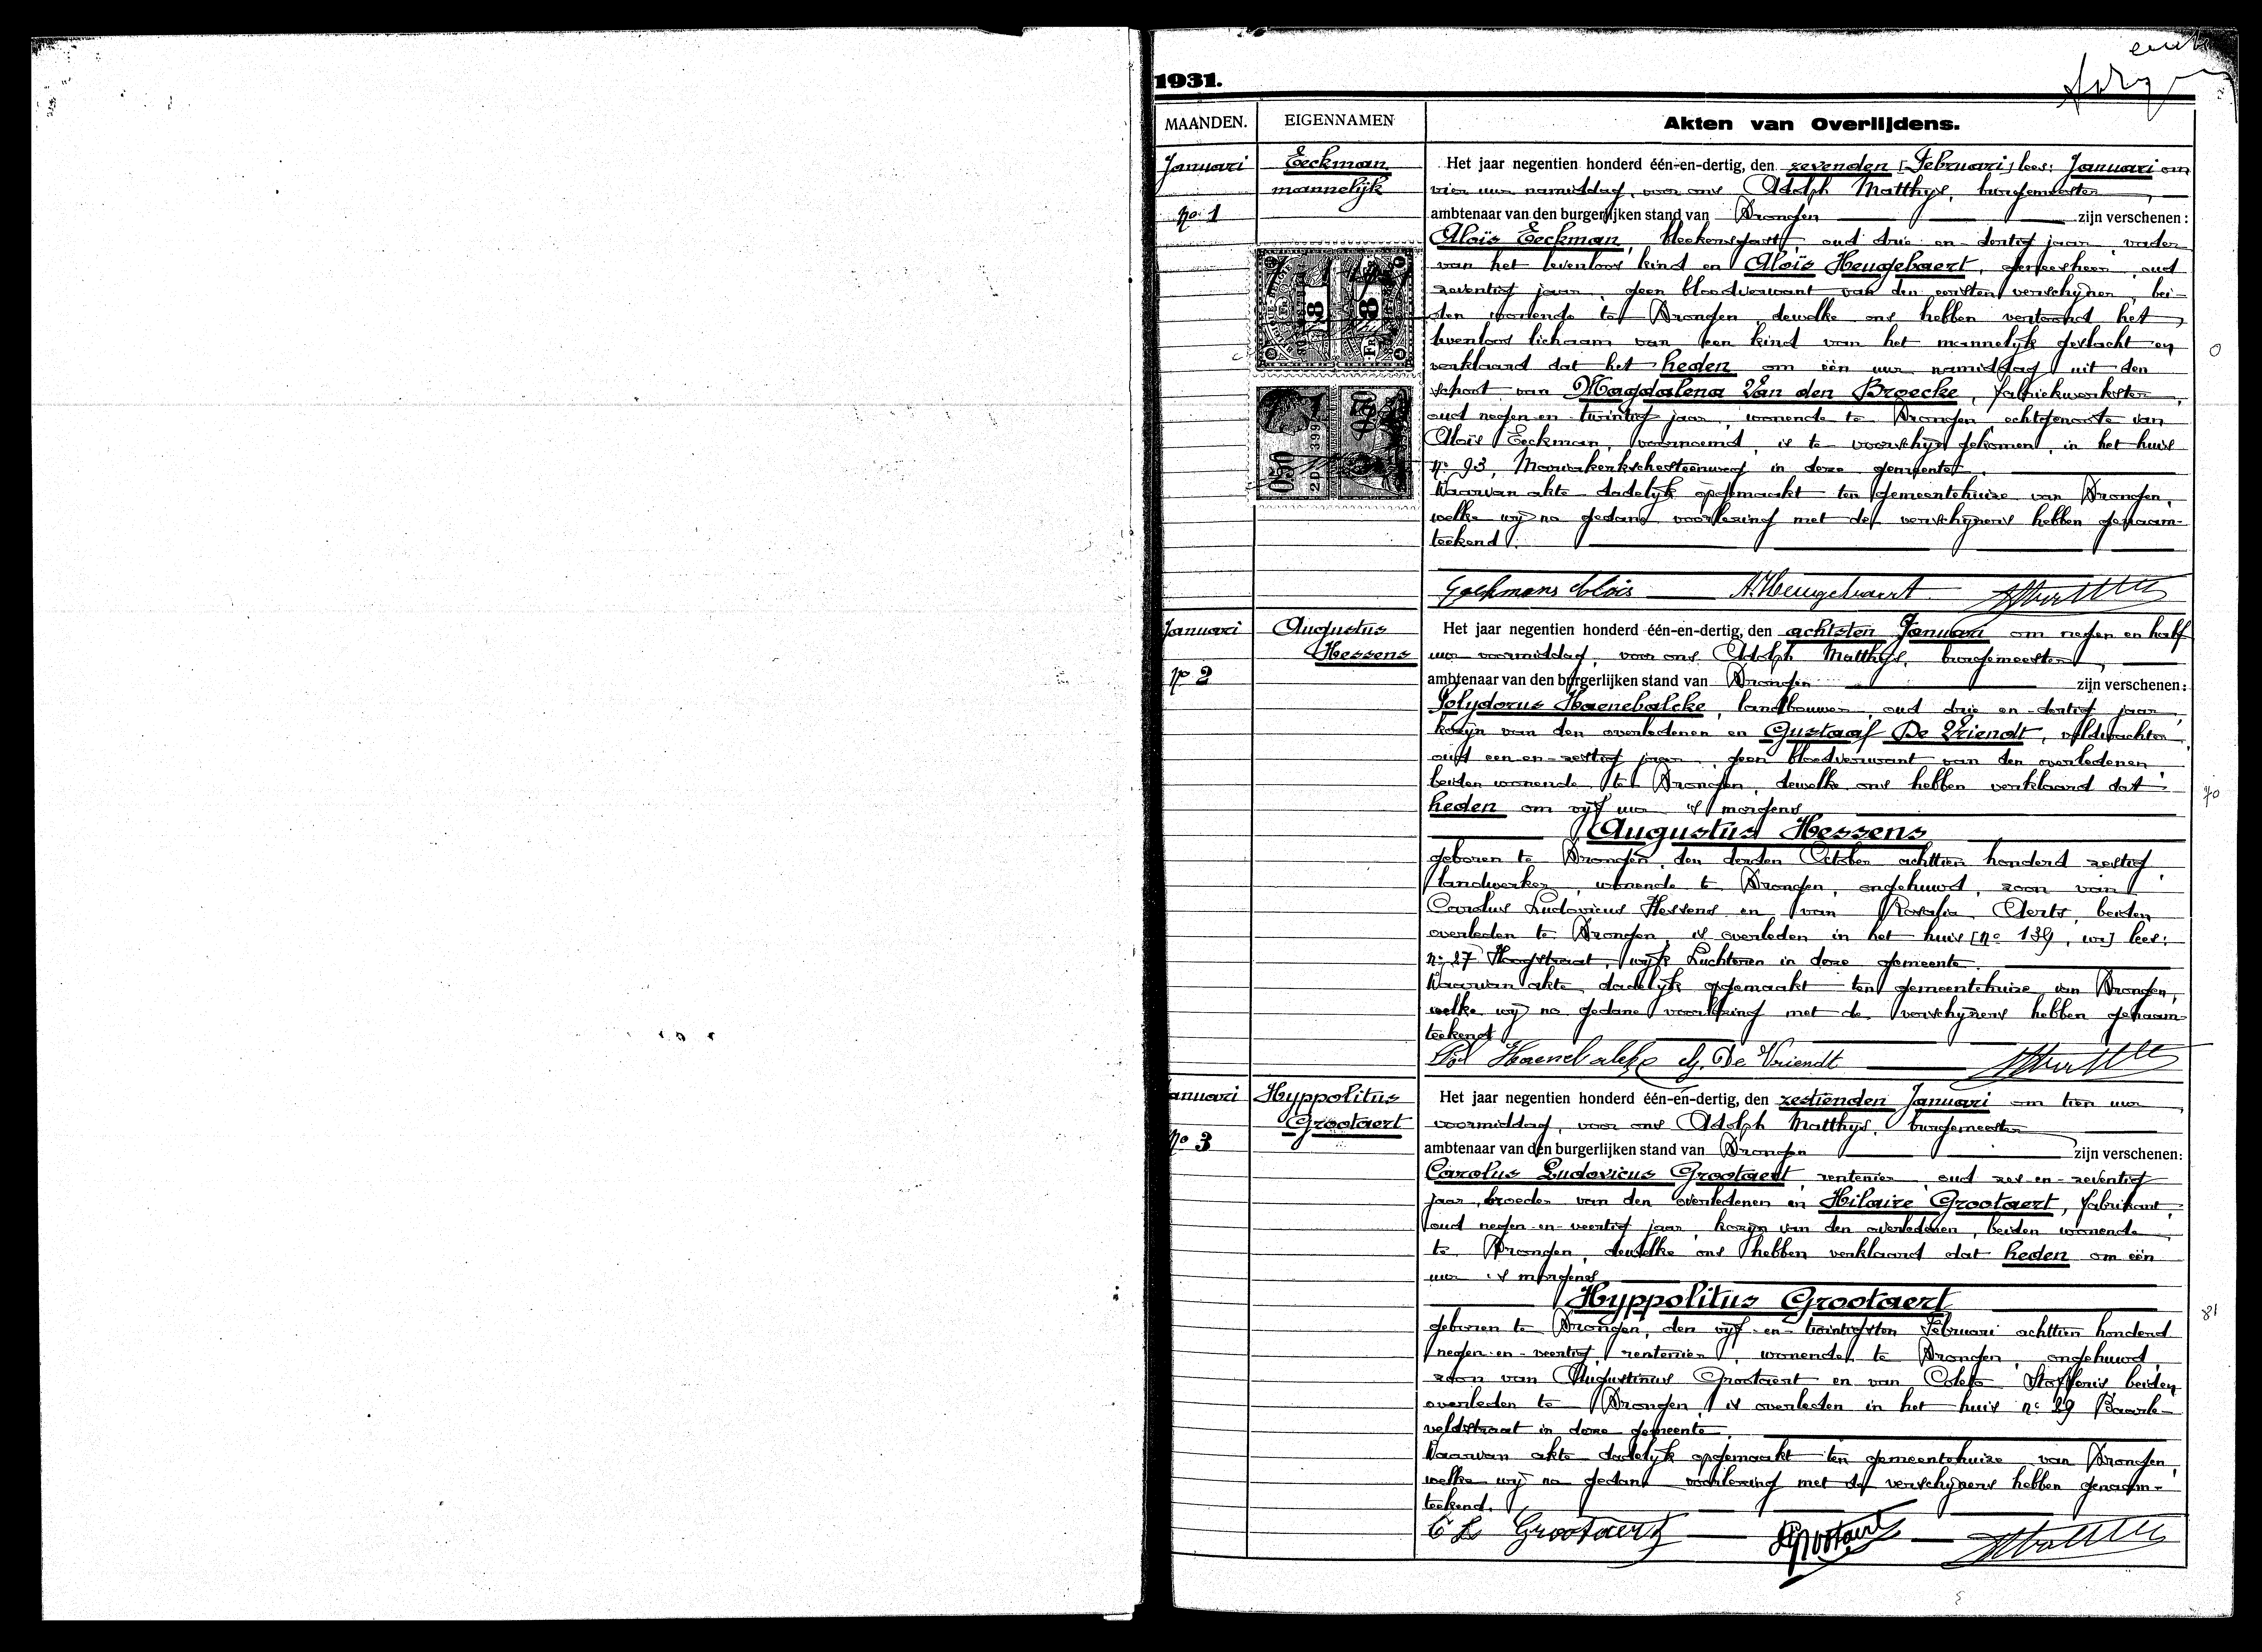 1931.
MAANDEN.
EIGENNAMEN
Akten van Overlijdens.
Januari
No 1
Eeckman
mannelijk
Het jaar negentien honderd één-en-dertig, den zevenden [Februari] lees: Januari om
vier uur namiddag, voor ons Adolph Matthys, burgemeester,
ambtenaar van den burgerlijken stand van Drongen zijn verschenen:
Aloïs Eeckman, bleekersgast, oud drie-en-dertig jaar, vader
van het levenloos kind en Aloïs Heugebaert, geneesheer, oud
zeventig jaar, geen bloedverwant van den eersten verschijner, bei-
den wonende te Drongen, dewelke ons hebben vertoond het
levenloos lichaam van een kind van het mannelijk geslacht en
verklaard dat het heden om één uur namiddag uit den
schoot van Magdalena Van den Broecke, fabriekwerkster,
oud negen-en-twintig jaar, wonende te Drongen, echtgenoote van
Aloïs Eeckman, voornoemd, is te voorschijn gekomen, in het huis
no 93, Mariakerkschesteenweg in deze gemeente.
Waarvan akte dadelijk opgemaakt ten gemeentehuize van Drongen,
welke wij na gedane voorlezing met de verschijners hebben genaam-
teekend.
Eeckmans Alois A. Heugebaert
Januari
No 2
Augustus
Hessens
Het jaar negentien honderd één-en-dertig, den achtsten Januari om negen en half
uur voormiddag, voor ons Adolph Matthys, burgemeester,
ambtenaar van den burgerlijken stand van Drongen zijn verschenen:
Polydorus Haenebalcke, landbouwer, oud drie-en-dertig jaar,
kozijn van den overledenen en Gustaaf De Vriendt, veldwachter,
oud een-en-zestig jaar, geen bloedverwant van den overledenen,
beiden wonende te Drongen, dewelke ons hebben verklaard dat
heden om vijf uur 's morgens
Augustus Hessens
geboren te Drongen, den derden October achttien honderd zestig,
landwerker, wonende te Drongen, ongehuwd, zoon van
Carolus Ludovicus Hessens en van Rosalia Aerts, beiden
overleden te Drongen, is overleden in het huis [no 139, wij] lees:
no 27 Hoogstraat, wijk Luchteren in deze gemeente.
Waarvan akte dadelijk opgemaakt ten gemeentehuize van Drongen,
welke wij na gedane voorlezing met de verschijners hebben genaam-
teekend
Pol Haenebalcke G. De Vriendt
70
Januari
No 3
Hyppolitus
Grootaert
Het jaar negentien honderd één-en-dertig, den zestienden Januari om tien uur
voormiddag, voor ons Adolph Matthys, burgemeester
ambtenaar van den burgerlijken stand van Drongen zijn verschenen:
Carolus Ludovicus Grootaert, rentenier, oud zes-en-zeventig
jaar, broeder van den overledenen en Hilaire Grootaert, fabrikant,
oud negen-en-veertig jaar, kozijn van den overledenen, beiden wonende
te Drongen, dewelke ons hebben verklaard dat heden om één
uur 's morgens
Hyppolitus Grootaert
geboren te Drongen, den vijf-en-twintigsten Februari achttien honderd
negen-en-veertig, rentenier, wonende te Drongen, ongehuwd,
zoon van Augustinus Grootaert en van Coleta Stofferis beiden
overleden te Drongen, is overleden in het huis no 29 Baarle-
veldstraat in deze gemeente.
Waarvan akte dadelijk opgemaakt ten gemeentehuize van Drongen,
welke wij na gedane voorlezing met de verschijners hebben genaam-
teekend.
C L Grootaert HGrootaert
81